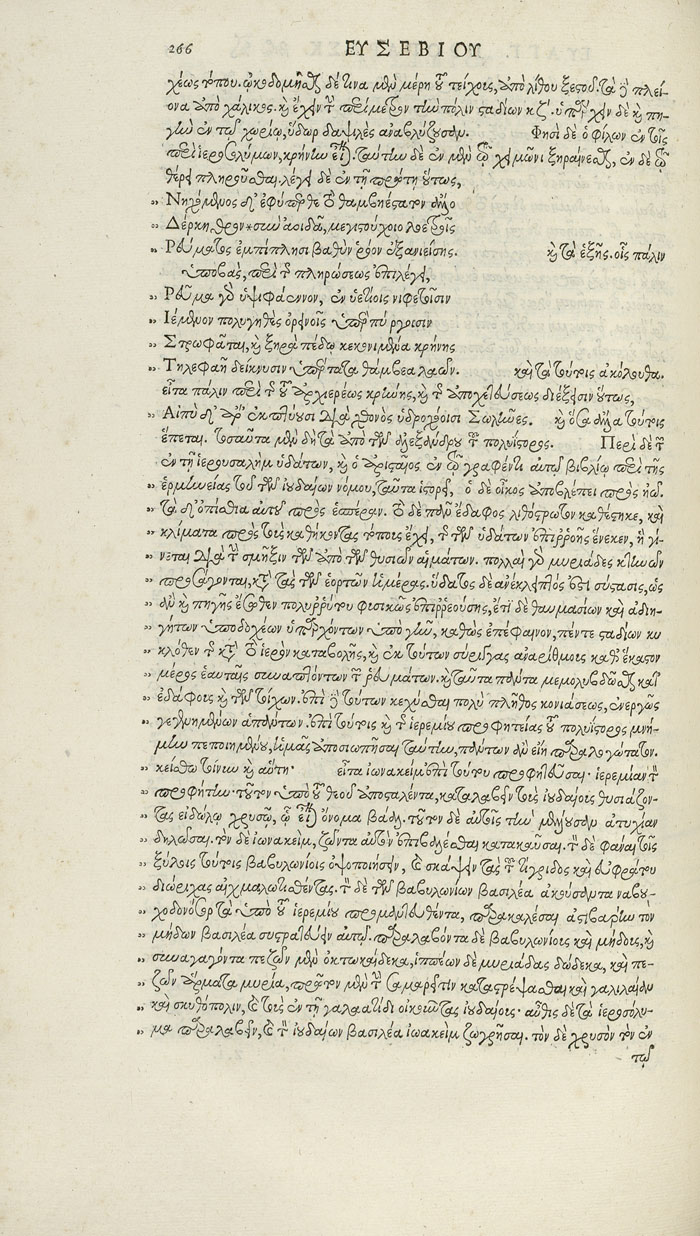 266 ΕΥΣΕΒΙΟΥ
χέως τόπου. ᾠκοδομῆσθαι δέ τινα μὲν μέρη τοῦ τείχους, ἀπὸ λίθου ξεστοῦ. τὰ δὲ πλεί-
ονα ἀπὸ χάλικος. καὶ ἔχειν τὴν περίμετρον τὴν πόλιν σταδίων κζ΄. ὑπάρχειν δὲ καὶ πη-
γὴν ἐν τῷ χωρίῳ, ὕδωρ δαψιλὲς ἀναβλύζουσαν. Φησὶ δὲ ὁ φίλων ἐν τοῖς
περὶ ἱεροσολύμων, κρήνην εἶναι. ταύτην δὲ ἐν μὲν τῷ χειμῶνι ξηραίνεσθαι, ἐν δὲ τῷ
θέρει πληροῦσθαι. λέγει δὲ ἐν τῇ πρώτῃ οὕτως,
„ Νηχόμενος δ' ἐφύπερθε τὸ θαμβηέστατον ἄλλο
„ Δέρκηθρον*σὺν ἀοιδᾶ, μεγιστούχοιο λοετροῖς
„ Ρεύματος ἐμπίπλησι βαθὺν ῥόον ἐξανιείσης. καὶ τὰ ἑξῆς. οἷς πάλιν
ὑποβὰς, περὶ τῆς πληρώσεως ἐπιλέγει,
„ Ρεῦμα γὰρ ὑψιφάεννον, ἐν ὑετίοις νιφετοῖσιν
„ Ιέμενον πολυγηθὲς ὀρεινοῖς ὑπὲρ πύργοισιν
„ Στρωφᾶται, καὶ ξηρὰ πέδῳ κεκονιμένα κρήνης
„ Τηλεφαῆ δείκνυσιν ὑπέρτατα θάμβεα λαῶν. καὶ τὰ τούτοις ἀκόλουθα.
εἶτα πάλιν περὶ τῆς τοῦ ἀρχιερέως κρήνης, καὶ τῆς ἀποχετεύσεως διέξεισιν οὕτως,
„ Αἰπὺ δ' ἂρ' ἐκπτύουσι διὰ χθονὸς ὑδροχόοισι Σωλῆνες. καὶ ὅσα ἄλλα τούτοις
ἕπεται. τοσαῦτα μὲν δὴ τὰ ἀπὸ τῶν ἀλεξάνδρου τοῦ πολυΐστορος. Περὶ δὲ τῶν
ἐν τῇ ἱερουσαλὴμ ὑδάτων, καὶ ὁ ἀρισταῖος ἐν τῷ γραφέντι αὐτῷ βιβλίῳ περὶ τῆς
„ ἑρμηνείας τοῦ τῶν ἰουδαίων νόμου, ταῦτα ἱστορεῖ, ὁ δὲ οἶκος ἀποβλέπει πρὸς ἠῶ.
„ τὰ δ' ὀπίσθια αὐτοῦ πρὸς ἑσπέραν. τὸ δὲ πᾶν ἔδαφος λιθόστρωτον καθέστηκε, καὶ
„ κλίματα πρὸς τοὺς καθήκοντας τόπους ἔχει, τῆς τῶν ὑδάτων ἐπιρροῆς ἕνεκεν, ἣ γί-
„ νεται διὰ τὴν σμῆξιν τῶν ἀπὸ τῶν θυσιῶν αἱμάτων. πολλαὶ γὰρ μυριάδες κτηνῶν
„ προσάγονται, κατὰ τὰς τῶν ἑορτῶν ἡμέρας. ὕδατος δὲ ἀνέκλειπτός ἐστι σύστασις, ὡς
„ ἂν καὶ πηγῆς ἔσωθεν πολυρρύτου φυσικῶς ἐπιρρεούσης, ἔτι δὲ θαυμασίων καὶ ἀδιη-
„ γήτων ὑποδοχέων ὑπαρχόντων ὑπὸ γῆν, καθὼς ἐπέφαινον, πέντε σταδίων κυ
„ κλόθεν τῆς κατὰ τὸ ἱερὸν καταβολῆς, καὶ ἐκ τούτων σύριγγας ἀναρίθμους καθ' ἕκαστον
„ μέρος ἑαυτὰς συναπτόντων τῶν ῥευμάτων. καὶ ταῦτα πάντα μεμολυβδῶσθαι κατ'
„ ἐδάφους καὶ τῶν τοίχων. ἐπὶ δὲ τούτων κεχύσθαι πολὺ πλῆθος κονιάσεως, ἐνεργῶς
„ γεγενημένων ἁπάντων. ἐπὶ τούτοις καὶ τῆς ἱερεμίου προφητείας τοῦ πολυΐστορος μνή-
μην πεποιημένου, ἡμᾶς ἀποσιωπῆσαι ταύτην, πάντων ἂν εἴη παραλογώτατον.
„ κείσθω τοίνυν καὶ αὕτη· εἶτα ἰωνακείμ. ἐπὶ τούτου προφητεῦσαι· ἱερεμίαν τὸν
„ προφήτην. τοῦτον ὑπὸ τοῦ θεοῦ ἀποσταλέντα, καταλαβεῖν τοὺς ἰουδαίους θυσιάζον-
„ τας εἰδώλῳ χρυσῷ, ᾧ εἶναι ὄνομα βάαλ. τοῦτον δὲ αὐτοῖς τὴν μέλλουσαν ἀτυχίαν
„ δηλῶσαι. τὸν δὲ ἰωνακείμ, ζῶντα αὐτὸν ἐπιβαλέσθαι κατακαῦσαι. τὸν δὲ φάναι τοῖς
„ ξύλοις τούτοις βαβυλωνίοις ὀψοποιήσειν, καὶ σκάψειν τὰς τοῦ τίγριδος καὶ εὐφράτου
„ διώρυχας αἰχμαλωτισθέντας. τὸν δὲ τῶν βαβυλωνίων βασιλέα ἀκούσαντα ναβου-
„ χοδονόσορ τὰ ὑπὸ τοῦ ἱερεμίου προμαντευθέντα, παρακαλέσαι ἀστιβάρην τὸν
„ μήδων βασιλέα συστρατεύειν αὐτῷ. παραλαβόντα δὲ βαβυλωνίους καὶ μήδους, καὶ
„ συναγαγόντα πεζῶν μὲν ὀκτωκαίδεκα, ἱππέων δὲ μυριάδας δώδεκα, καὶ πε-
„ ζῶν ἅρματα μυρία, πρῶτον μὲν τὴν σαμαρεῖτιν καταστρέψασθαι καὶ γαλιλαίαν
„ καὶ σκυθόπολιν, καὶ τοὺς ἐν τῇ γαλαατίδι οἰκοῦντας ἰουδαίους· αὖθις δὲ τὰ ἱεροσόλυ-
„ μα παραλαβεῖν, καὶ τὸν ἰουδαίων βασιλέα ἰωακεὶμ ζωγρῆσαι. τὸν δὲ χρυσὸν τὸν ἐν
τῷ